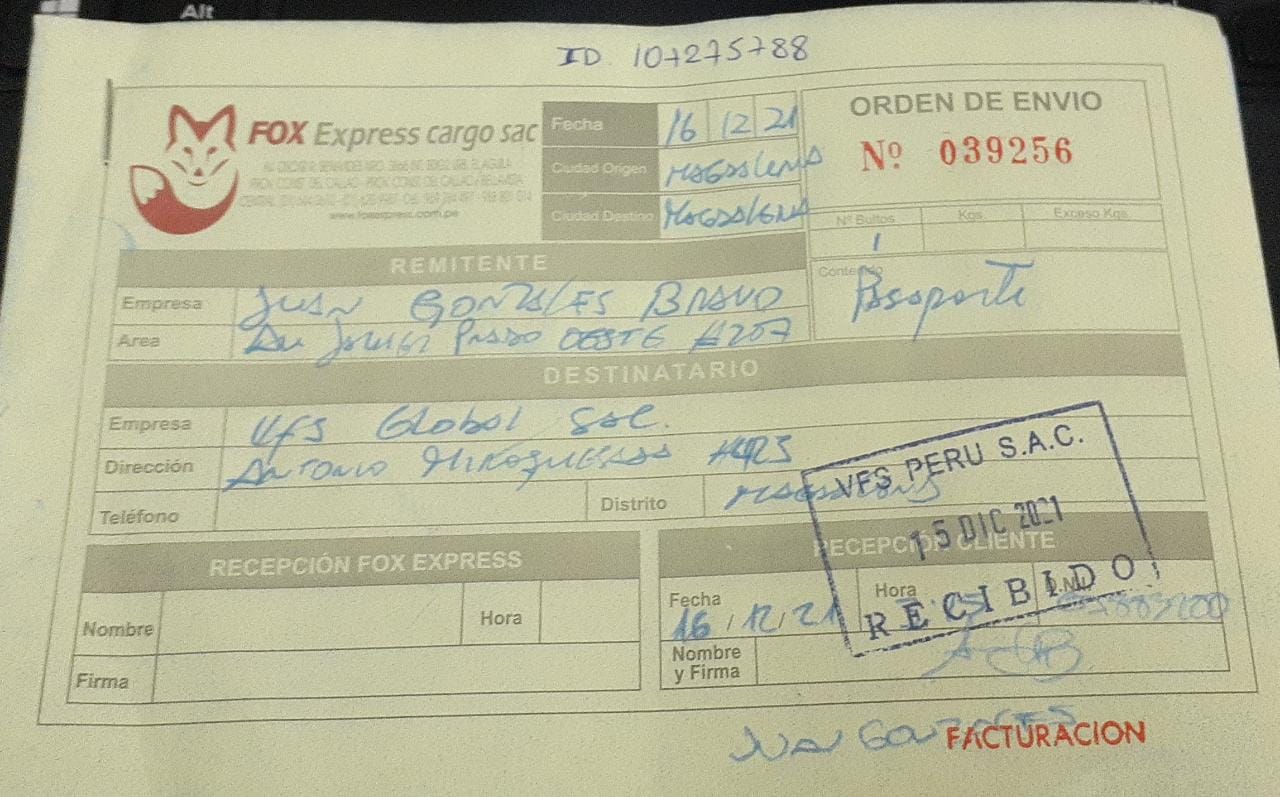 Alt
ID 107275788
FOX Express cargo sac
www.foxexpress.com.pe
Fecha 16 12 21
Ciudad Origen Magdalena
Ciudad Destino Magdalena
ORDEN DE ENVIO
Nº 039256
Nº Bultos Kgs. Exceso Kgs.
1
Contenido Pasaporte
REMITENTE
Empresa Juan Gonzales Bravo
Area Prado Oeste
DESTINATARIO
Empresa Vfs Global Sac.
Dirección Antonio Miroquesada
Teléfono Distrito Magdalena
VFS PERU S.A.C.
15 DIC 2021
RECIBIDO
RECEPCIÓN FOX EXPRESS
Nombre Hora
Firma
RECEPCIÓN CLIENTE
Fecha Hora D.N.I.
16/12/21
Nombre
y Firma
Juan Gonzales
FACTURACION